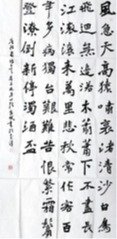 風急天高猿嘯哀渚清沙白鳥
飛迴無邊落木蕭蕭下不盡長
江滾滾來萬里悲秋常作客百
年多病獨登台艱難苦恨繁霜鬢
潦倒新停濁酒盃